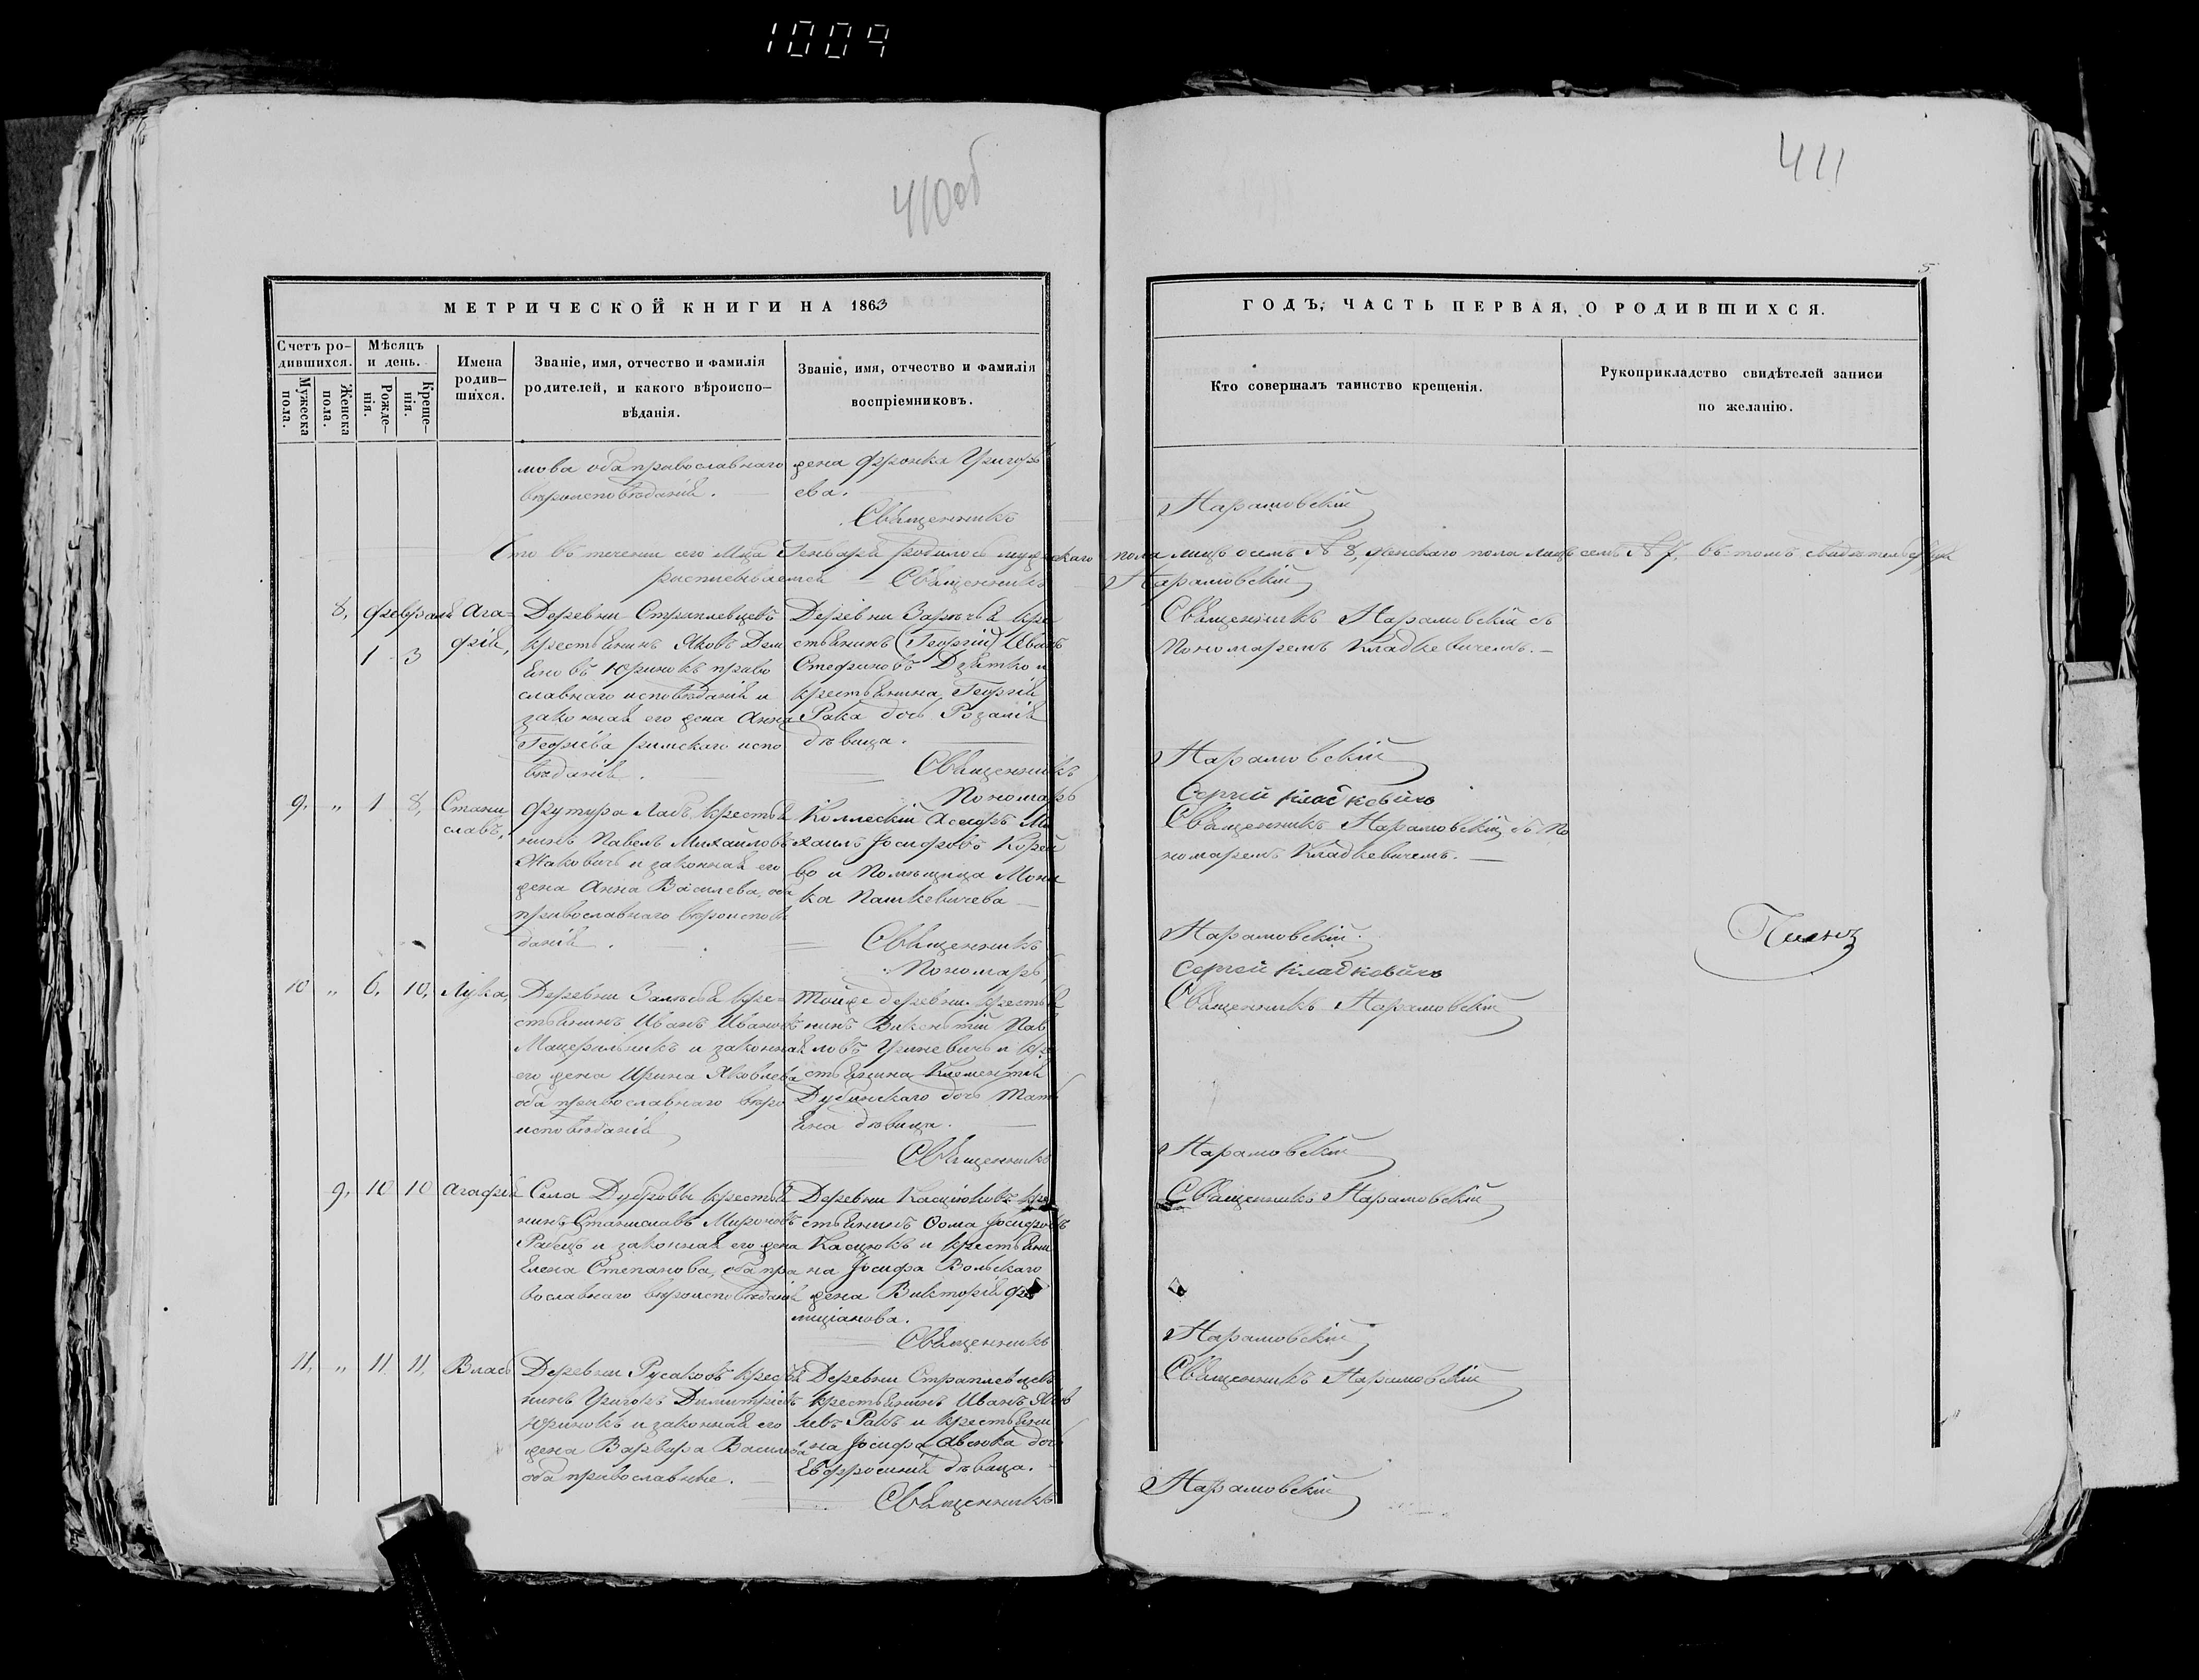 1009
410об
411
5
МЕТРИЧЕСКОЙ КНИГИ НА 1863
ГОДЪ, ЧАСТЬ ПЕРВАЯ, О РОДИВШИХСЯ.
Счетъ ро-
дившихся.
Мужеска
пола.
Женска
пола.
Мѣсяцъ
и день.
Рожде-
нія.
Креще-
нія.
Имена
родив-
шихся.
Званіе, имя, отчество и фамилія
родителей, и какого вѣроиспо-
вѣданія.
Званіе, имя, отчество и фамилія
воспріемниковъ.
Кто совершалъ таинство крещенія.
Рукоприкладство свидѣтелей записи
по желанію.
мова оба православнаго
вѣроисповѣданія.
жена Фронка Григорь
ева.
Священникъ
Нарамовскій
Что въ теченіи сего Мца Генваря родилось мужскаго пола лицъ осемь № 8, женскаго пола лицъ семь № 7. въ томъ
расписываемся Священникъ Нарамовскій
8, февраля
1 3
Ага-
фія,
Деревни Страплевцевъ
крестьянинъ Яковъ Дем
яновъ Юринокъ право
славнаго исповѣданія и
законная его жена Анна
римскаго испо
вѣданія.
Деревни Зарѣчья кре
стьянинъ (Георгій) Иванъ
Стефановъ и
крестьянина Георгія
Рака дочь Розалія
дѣвица.
Священникъ
Пономарь
Священникъ Нарамовскій съ
Пономаремъ Кладкевичемъ.
Нарамовскій
Сергей Кладкевичъ
9, " 1 8,
Стани
славъ,
Футура Ласъ, крестья
нинъ Павелъ Михайловъ
Жакович и законная его
жена Анна Василева, оба
православнаго вѣроисповѣ
данія.
Коллескій Аселоръ Ми
хаилъ Іосифовъ Корей
во и Помѣщица Мони
ка Пашкевичева
Священникъ
Пономарь,
Священникъ Нарамовскій съ По
номаремъ Кладкевичемъ.
Нарамовскій
Сергей Кладкевичъ
10 " 6, 10,
Лука,
Деревни Залѣсья кре-
стьянинъ Иванъ Ивановъ
и законная
его жена Ирина Яковлева
оба православнаго вѣро
исповѣданія
Тойже деревни крестья
нинъ Викентій Пав
ловъ Гриневичъ и кре
стьянина Клементія
Дубинскаго дочь Тать
яна дѣвица.
Священникъ
Священникъ Нарамовскій
Нарамовскій
9, 10 10
Агафія
Села Дубровы крестья
нинъ Станиславъ Мироновъ
Рабецъ и законная его жена
Елена Степанова, оба пра
вославнаго вѣроисповѣданія
Деревни Касцюковъ кре
стьянинъ Ѳома Іосифовъ
Касцюкъ и крестьяни
на Іосифа Вольскаго
жена Викторія Фе
лиціанова.
Священникъ
Священникъ Нарамовскій
Нарамовскій
11, " 11 11,
Власъ
Деревни Русаковъ крестья
нинъ Григорь Димитріевъ
Юринокъ и законная его
жена Варвара Василева
оба православные.
Деревни Страплевцевъ
крестьянинъ Иванъ Яков
левъ Ракъ и крестьяни
на Іосифа Авсюка дочь
Евфросинія дѣвица.
Священникъ
Священникъ Нарамовскій
Нарамовскій